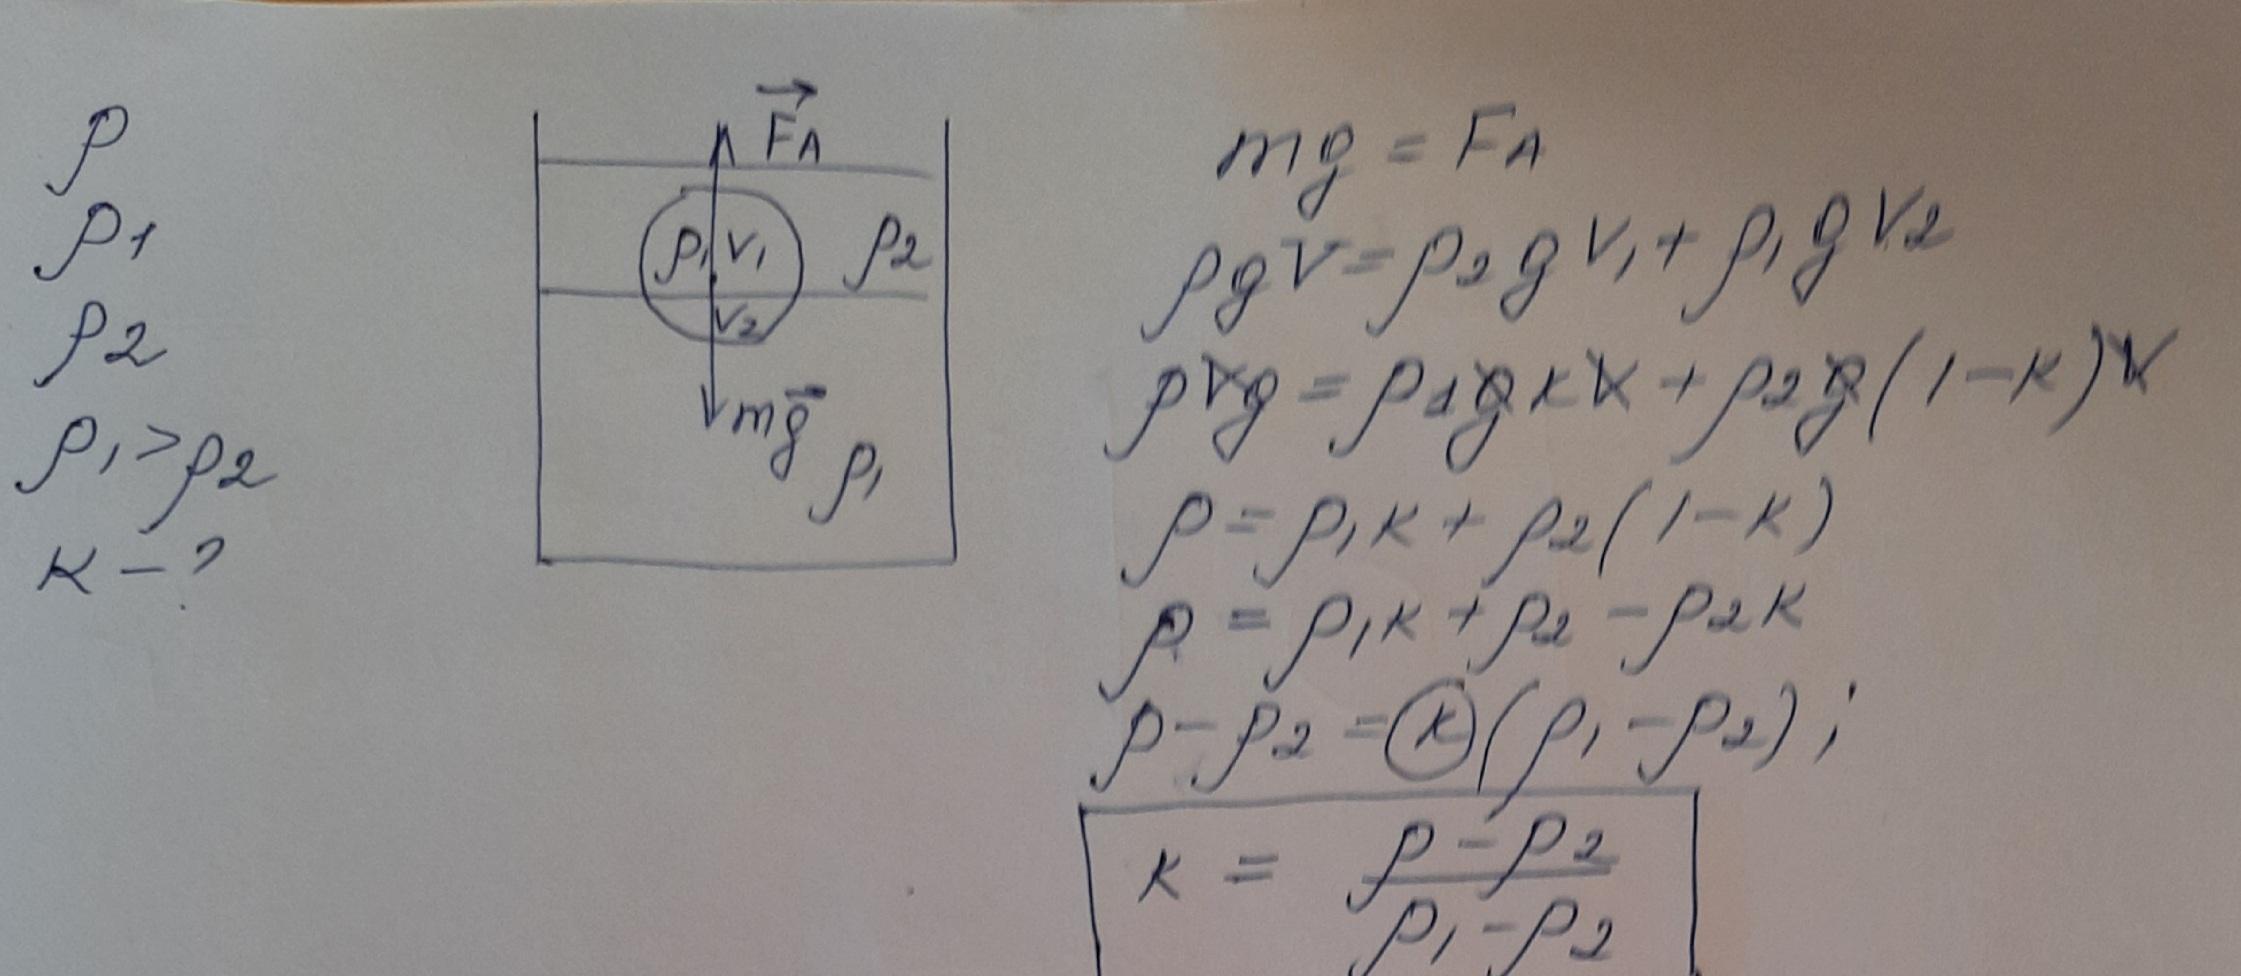 ρ
ρ1
ρ2
ρ1 > ρ2
к - ?
FA
ρ1 V1 ρ2
V2
mg
ρ1
mg = FA
ρgV = ρ2gV1 + ρ1gV2
ρVg = ρ1gкV + ρ2g(1-к)V
ρ = ρ1к + ρ2(1-к)
ρ = ρ1к + ρ2 - ρ2к
ρ - ρ2 = к(ρ1 - ρ2);
к = (ρ - ρ2)/(ρ1 - ρ2)